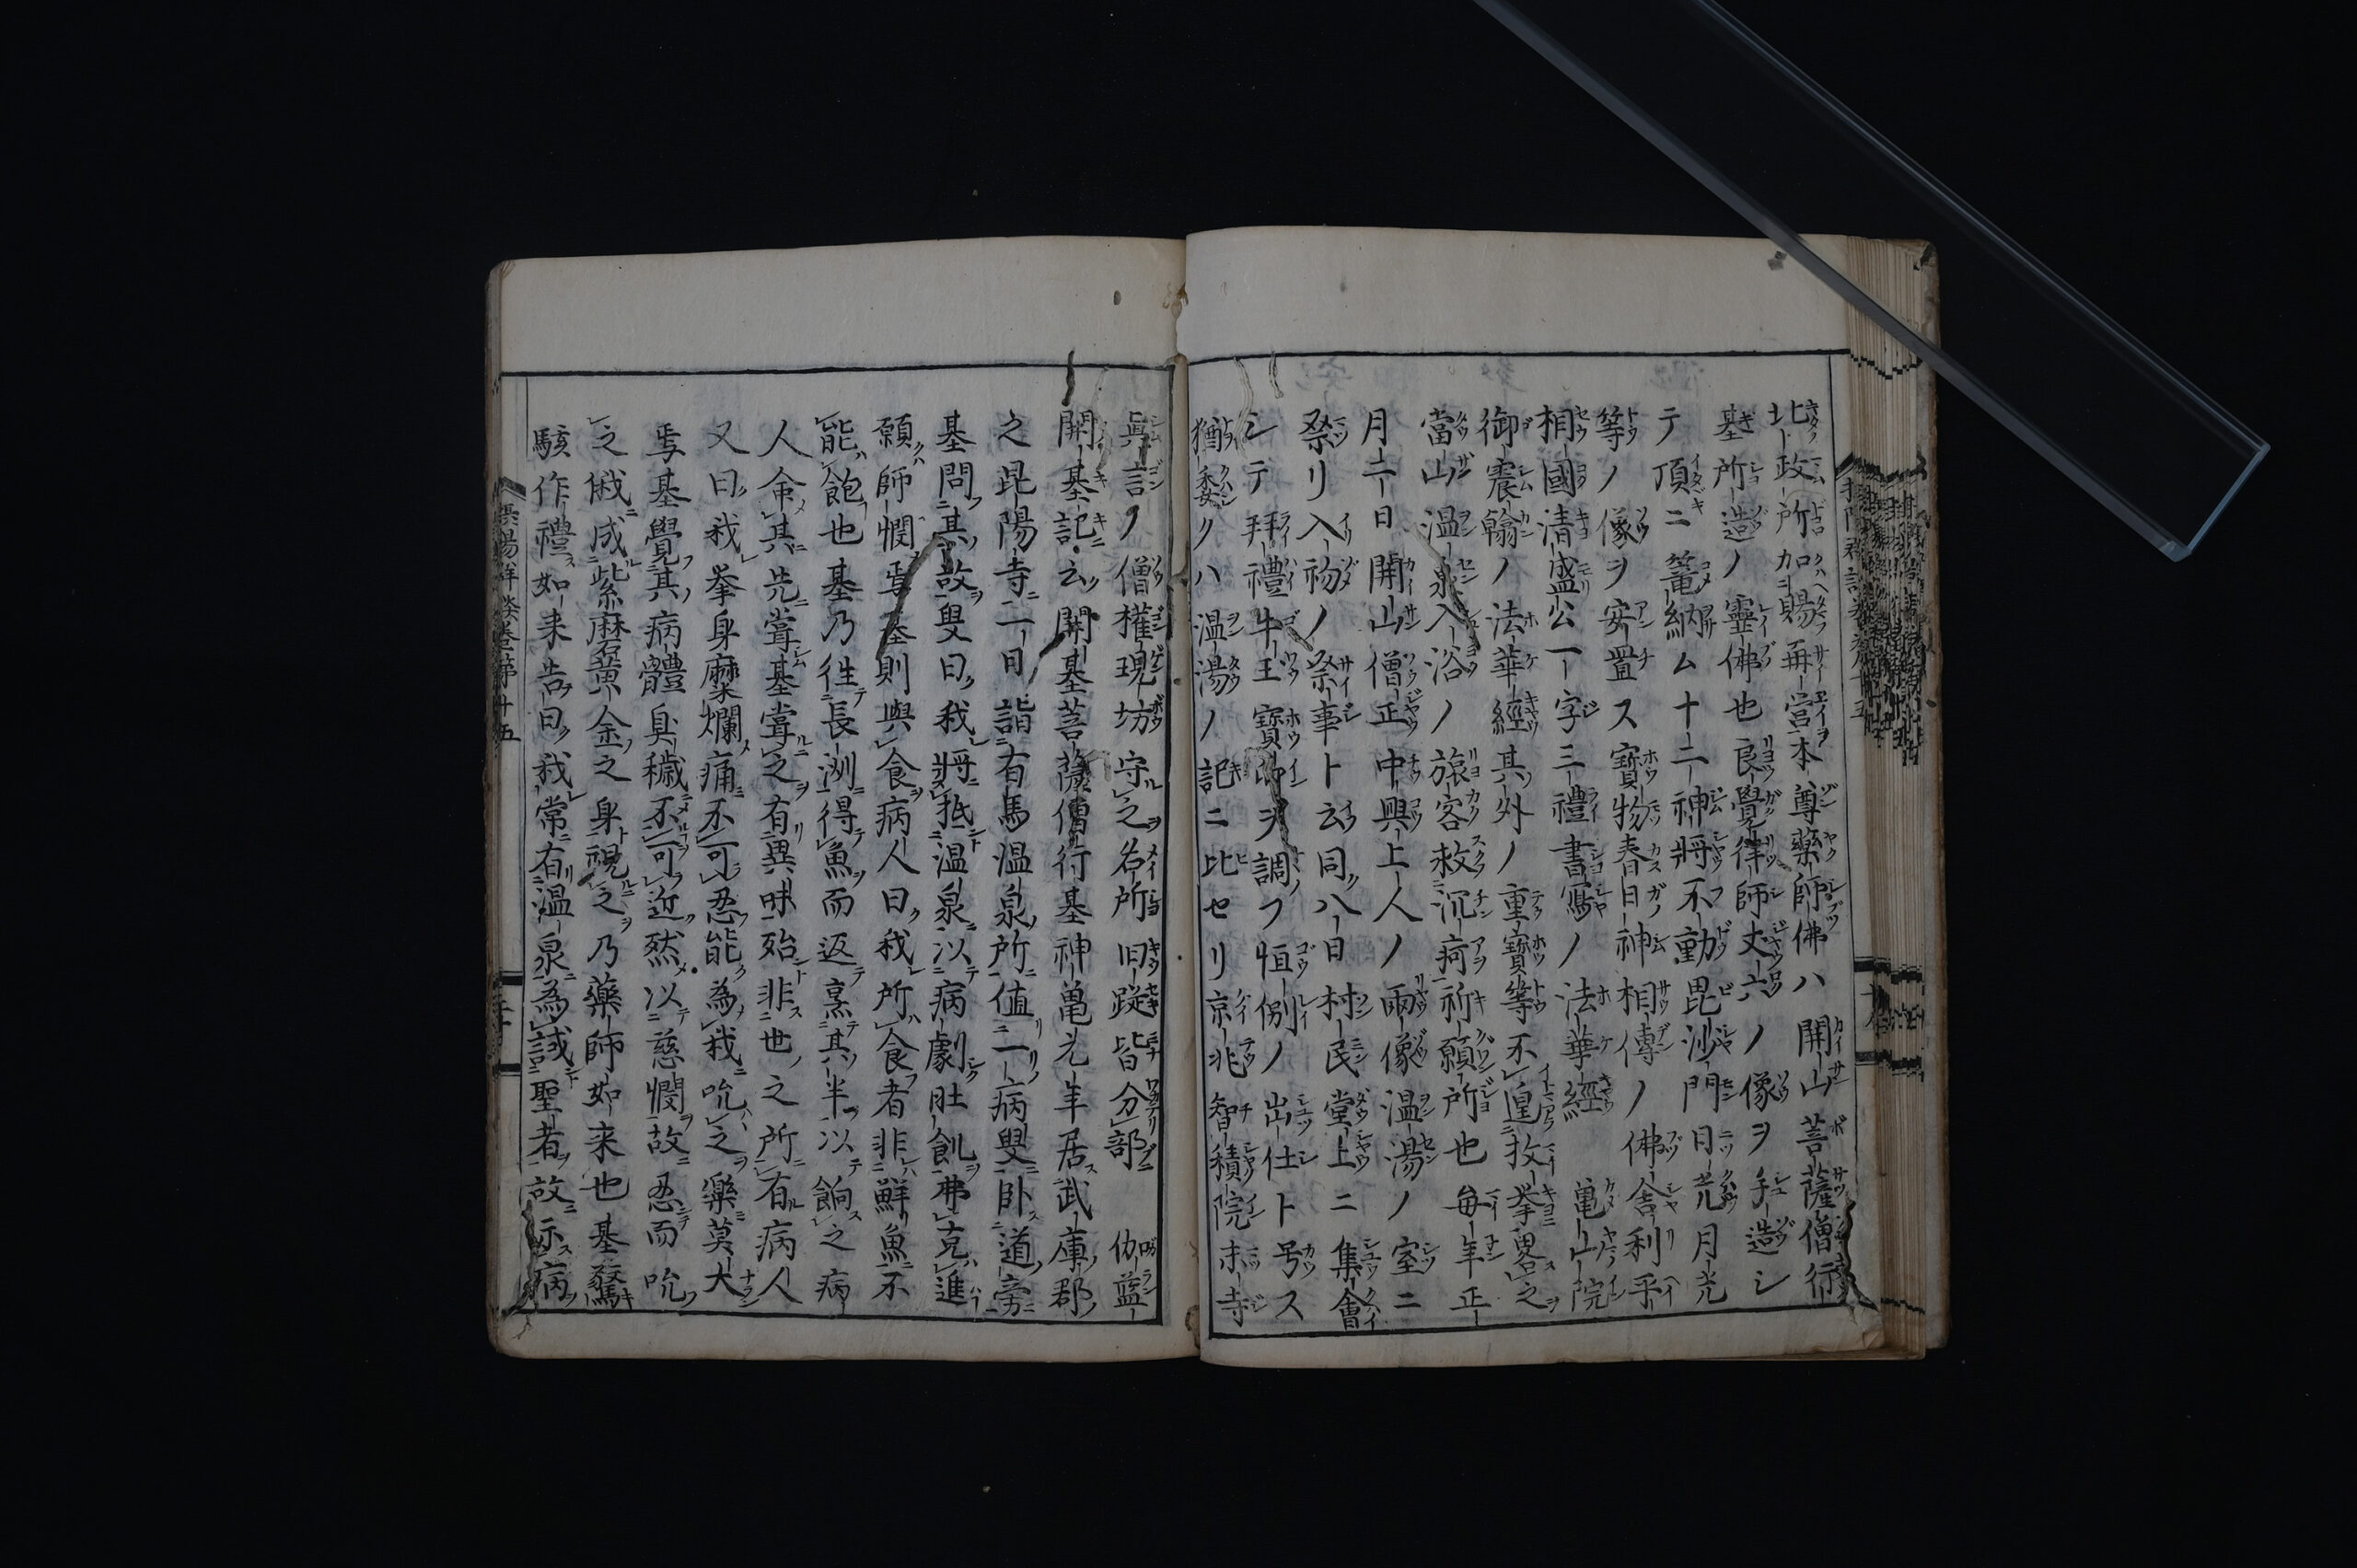 北政所加賜再営本尊薬師佛ハ開山菩薩僧行
基所造ノ霊佛也良覺律師丈六ノ像ヲ手造シ
テ頂ニ篭納ム十二神将不動毘沙門日光月光
等ノ像ヲ安置ス寶物春日神相傳ノ佛舎利平
相國清盛公一字三禮書寫ノ法華經亀山院
御震翰ノ法華經其外ノ重寶等不遑枚挙畧之
當山温泉入浴ノ旅客救沉痾祈願所也毎年正
月二日開山僧正中興上人ノ兩像温湯ノ室ニ
祭リ入初ノ祭事ト云同八日村民堂上ニ集會
シテ拜禮牛王寶印ヲ調フ恒例ノ出仕ト号ス
猶委クハ温湯ノ記ニ比セリ京兆智積院末寺
眞言ノ僧權現坊守之名所旧蹤皆分部 伽藍
開基記云開基菩薩僧行基神亀元年居武庫郡
之昆陽寺一日詣有馬温泉所値一病叟卧道旁
基問其故叟曰我將抵温泉以病劇肚飢弗克進
願師憫焉基則與食病人曰我所食者非鮮魚不
能飽也基乃往長洲得魚而返烹其半以餉之病
人命其先甞基甞之有異味殆非世之所有病人
又曰我挙身糜爛痛不可忍能為我吮之藥莫大
焉基覺其病體臭穢不可近然以慈憫故忍而吮
之俄成紫磨黄金之身視之乃藥師如来也基驚
駭作禮如来告曰我常有温泉為試聖者故示病
摂陽群談巻第十五